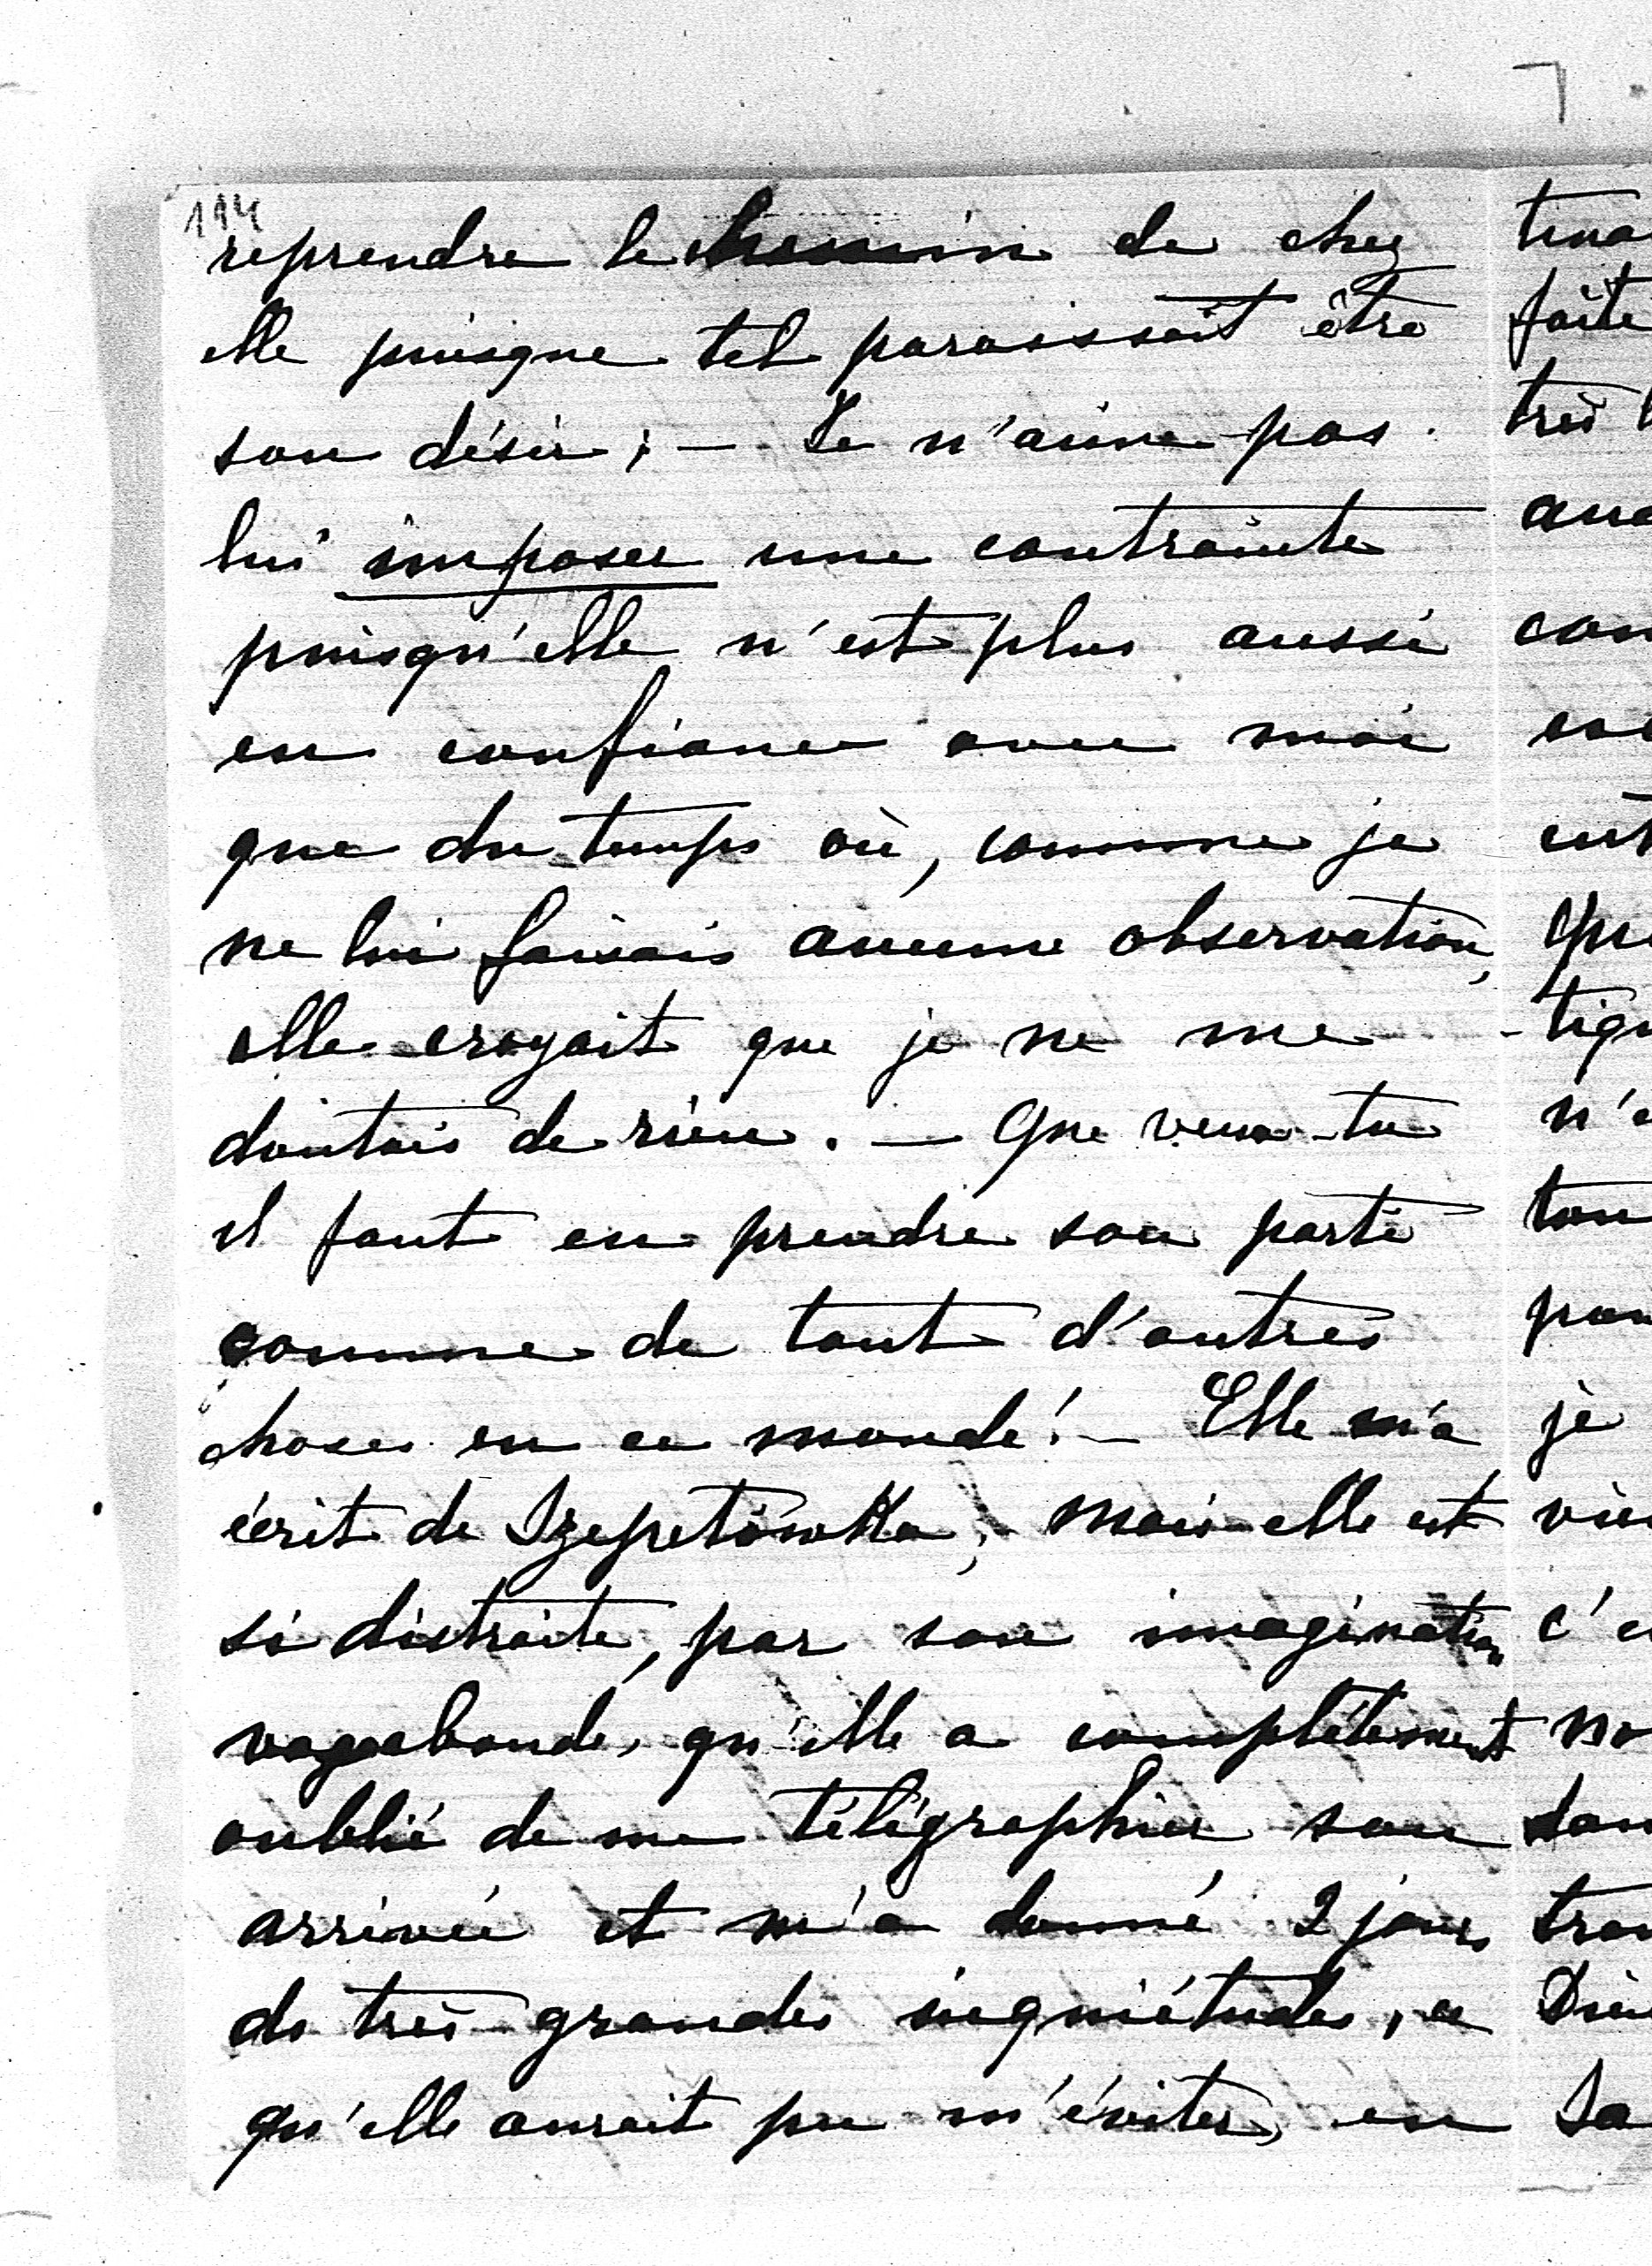 114
reprendre le chemin de chez
elle puisque tel paraissait être
son désir; — Je n'aime pas
lui imposer une contrainte
puisqu'elle n'est plus aussi
en confiance avec moi
que du temps où, comme je
ne lui faisais aucune observation,
elle croyait que je ne me
doutais de rien. — Que veux-tu
il faut en prendre son parti
comme de tant d'autres
choses en ce monde! — Elle m'a
écrit de Szepetówka; mais elle est
si distraite, par son imagination
vagabonde, qu'elle a complètement
oublié de me télégraphier son
arrivée et m'a donné 2 jours
de très grandes inquiétudes, ce
qu'elle aurait pu m'éviter, en